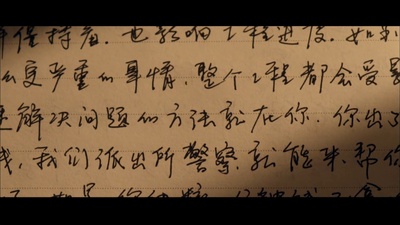 保持着，也影响工程进度，如果
么更严重的事情，整个工程都会受
解决问题的方法就在你，你出了
我们派出所警察就能来帮你